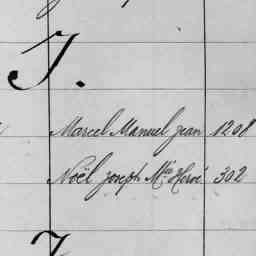 J.
Marcel Manuel Jean 1208
Noël Joseph Mie Hervé 302